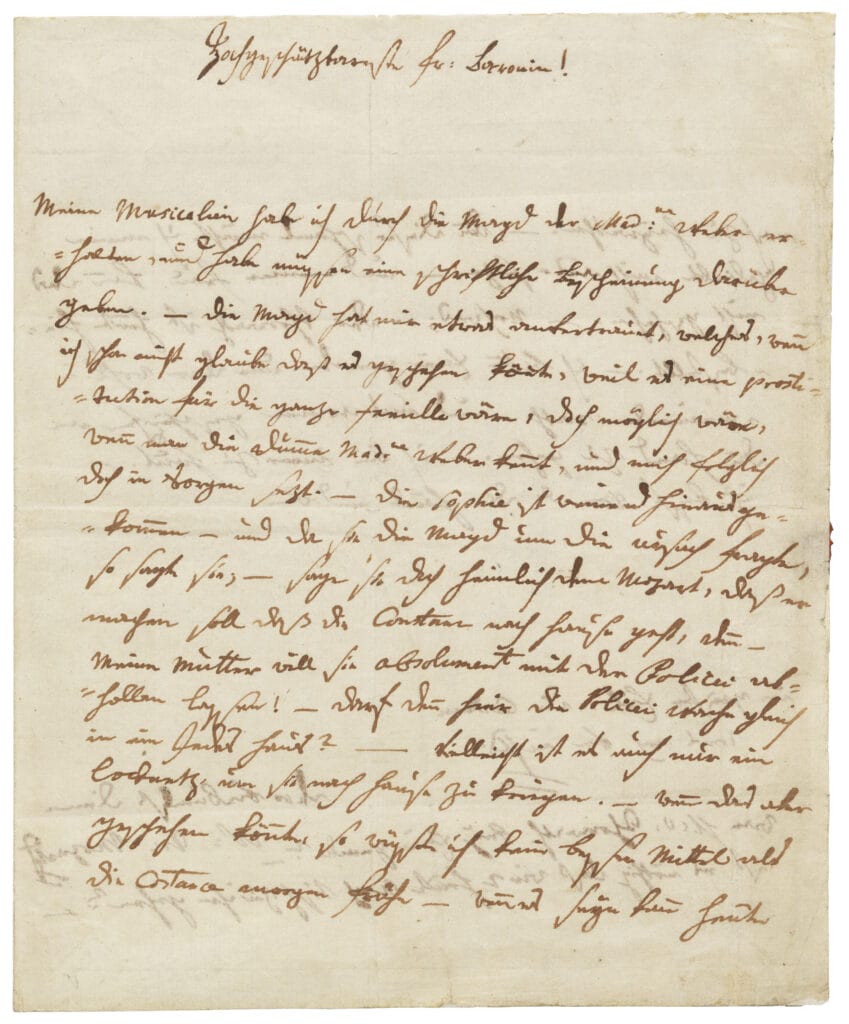 Hochgeschätzbareste fr: Baronin!
Meine Musicalien habe ich durch die Magd der Mad:me Weber er=
=halten, und habe müssen eine schriftliche bescheinung darüber
geben. — die Magd hat mir etwas anvertrauet, welches, wenn
ich schon nicht glaube daß es geschehen könnte, weil es eine prosti=
=tution für die ganze famille wäre, doch möglich wäre,
wenn man die dumme Mad:me Weber kennt, und mich folglich
doch in Sorgen setzt. — die Sophie ist weinend hinausge=
=kommen — und da sie die Magd um die ursach fragte,
so sagte sie, — sage sie doch heimlich dem Mozart, daß er
machen soll daß die Constanz nach hause geht, denn —
meine Mutter will sie absolument mit der Policei ab=
=hollen lassen! — darf denn hier die Policei Wache gleich
in ein Jedes haus? — vielleicht ist es auch nur ein
locknetz um sie nach hause zu kriegen. — wenn das aber
geschehen könnte, so wüsste ich kein besser Mittel als
die Costance morgen frühe — wenn es seyn kann heute